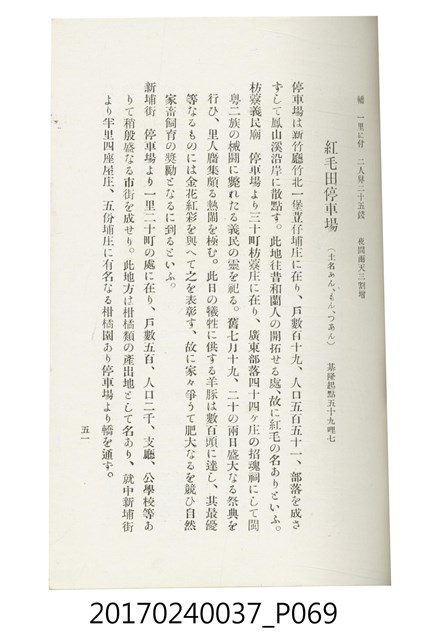 轎 一里に付 二人舁二十五錢 夜間雨天三割增
紅毛田停車場 (土名あん、もん、つあん) 基隆起點五十九哩七
停車場は新竹廳竹北一堡荳仔埔庄に在り、戶數百十九、人口五百五十一、部落を成さ
ずして鳳山溪沿岸に散點す。此地往昔和蘭人の開拓せる處、故に紅毛の名ありといふ。
枋寮義民廟 停車場より三十町枋寮庄に在り、廣東部落四十四ヶ庄の招魂祠にして閩
粤二族の械鬪に斃れたる義民の靈を祀る。舊七月十九、二十の兩日盛大なる祭典を
行ひ、里人麕集頗る熱鬧を極む。此日の犧牲に供する羊豚は數百頭に達し、其最優
等なるものには金花紅彩を與へて之を表彰す、故に家々爭うて肥大なるを競ひ自然
家畜飼育の奬勵となるに到るといふ。
新埔街 停車場より一里二十町の處に在り、戶數五百、人口二千、支廳、公學校等あ
りて稍殷盛なる市街を成せり。此地方は柑橘類の產出地として名あり、就中新埔街
より半里四座屋庄、五份埔庄に有名なる柑橘園あり停車場より轎を通ず。
五一
20170240037_P069